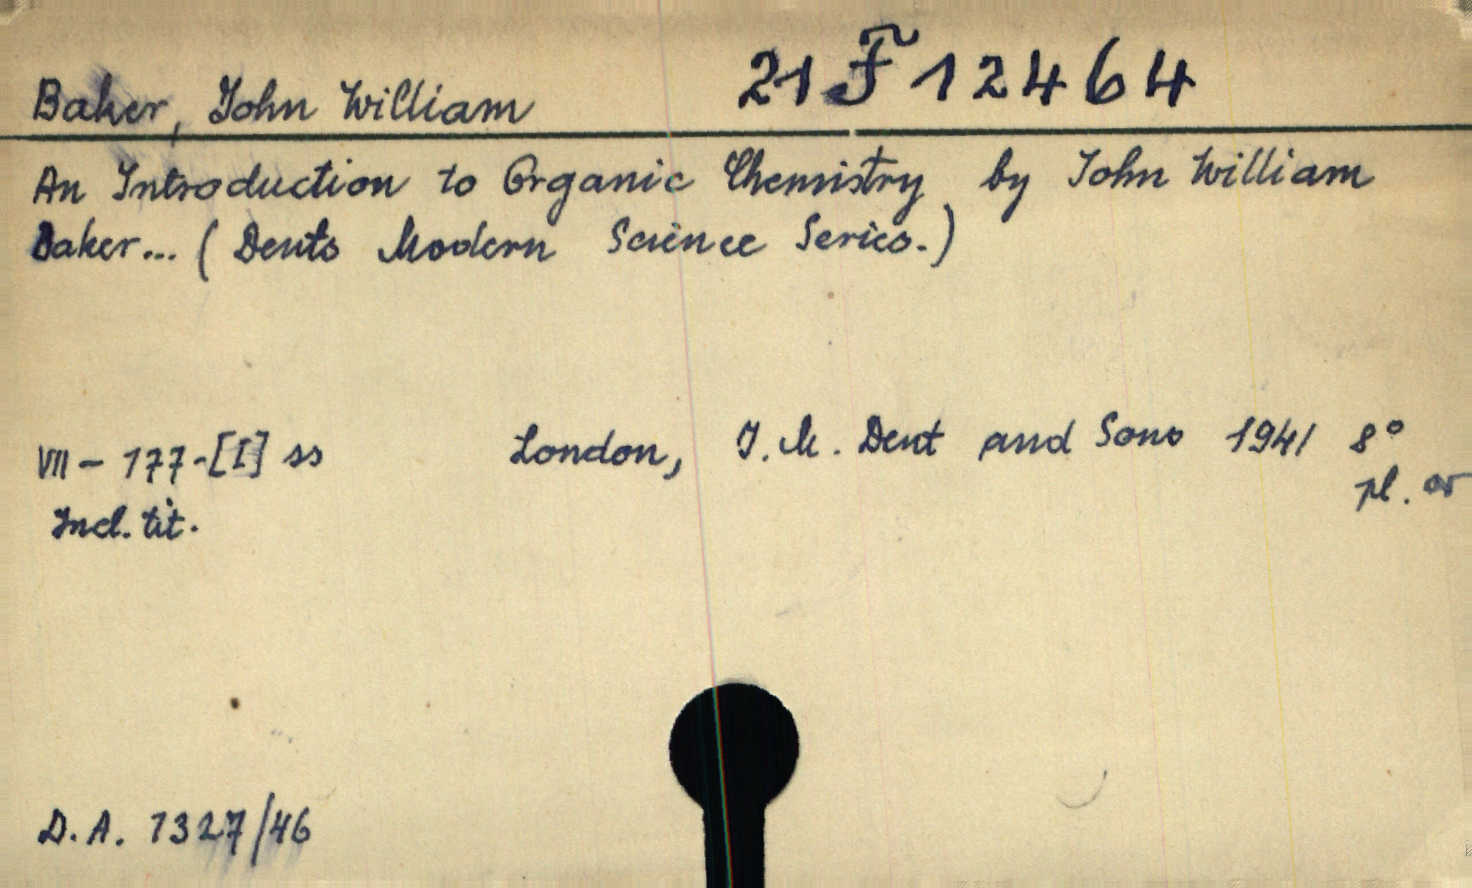 Baker, John William 21 F 12464
An Introduction to Organic Chemistry by John William
Baker... (Dents Modern Science Series.)
VII - 177-[I] ss London, J. M. Dent and Sons 1941 8°
pl.
Incl. tit.
D.A. 1327/46